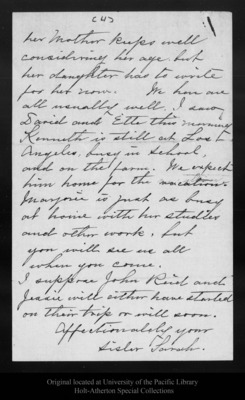 (4)
her Mother keeps well
considering her age but
her daughter has to write
for her now. We here are
all usually well. I saw
David and Etta this morning
Kenneth is still at Los
Angeles, busy in school,
and on the farm. We expect
him home for the vacation.
Marjorie is just as busy
at home with her studies
and other work, but
you will see us all
when you come.
I suppose John Reid and
Jessie will either have started
on their trip or will soon.
Affectionately your
sister Sarah.
Original located at University of the Pacific Library
Holt-Atherton Special Collections